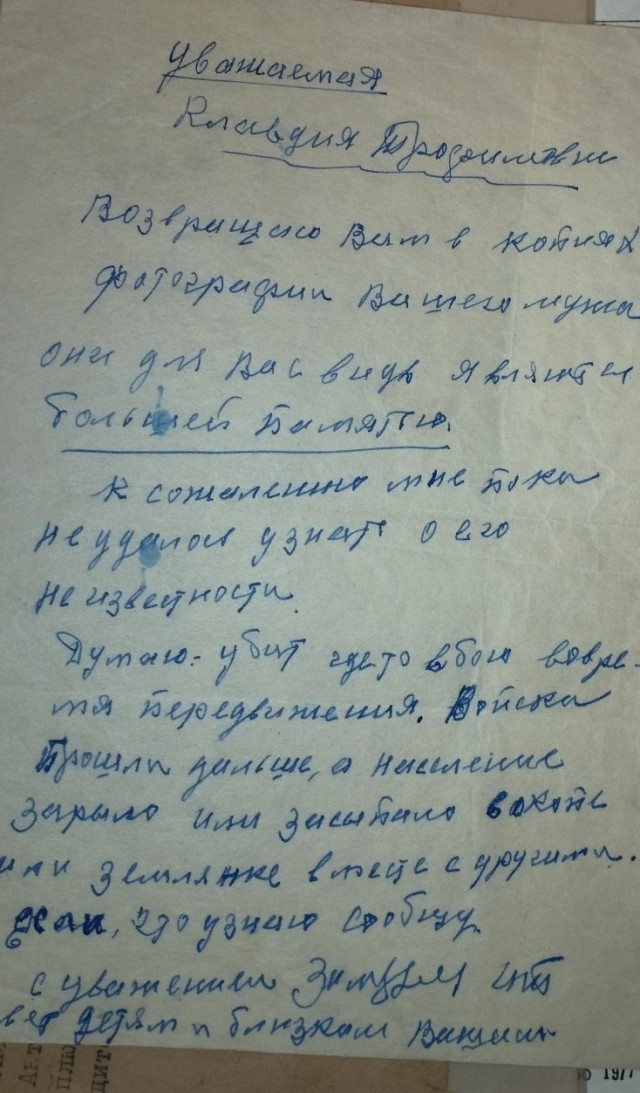 Уважаемая
Клавдия
Возвращаю Вам в копиях
фотографии Вашего мужа
они для Вас видь являются
большей памятью.
К сожалению мне пока
не удалос узнать о его
неизвестности.
Думаю: убит где то в бою вовре-
мя передвижения. Войска
прошли дальше, а население
зарыло или засыпало в окопе
или землянке вместе с другими.
Если, что узнаю сообщу.
с уважением
вет детям и близким Вашим
Ант
плю
щит
1977